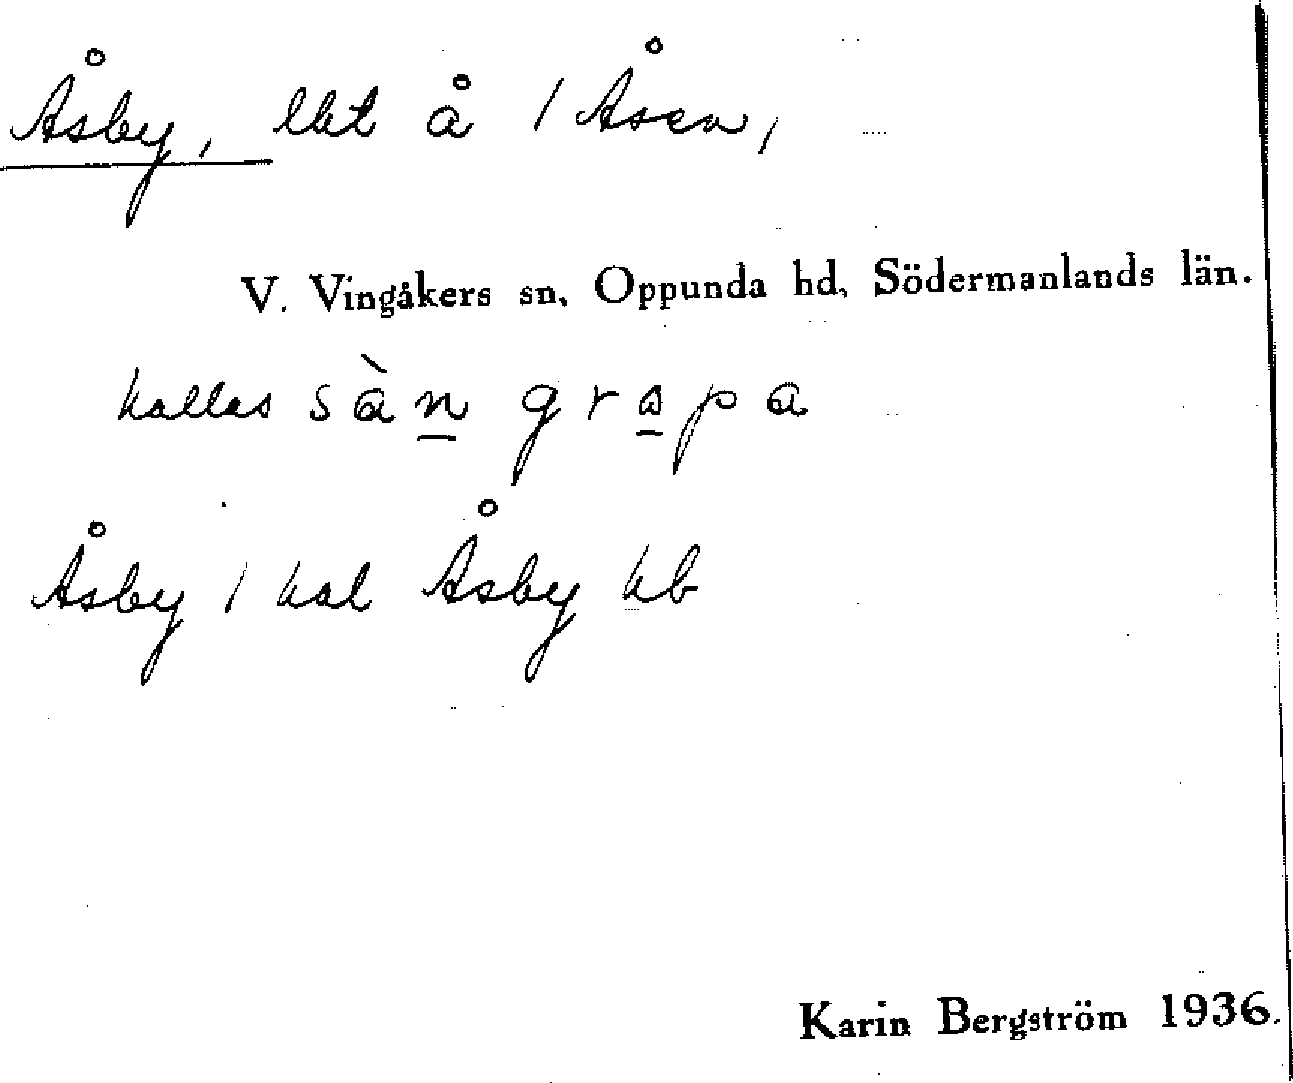 Åsby, lht å 1 Åsen,
V. Vingåkers sn, Oppunda hd, Södermanlands län.
kallas sàn grapa
Åsby 1 hal Åsby hb
Karin Bergström 1936.